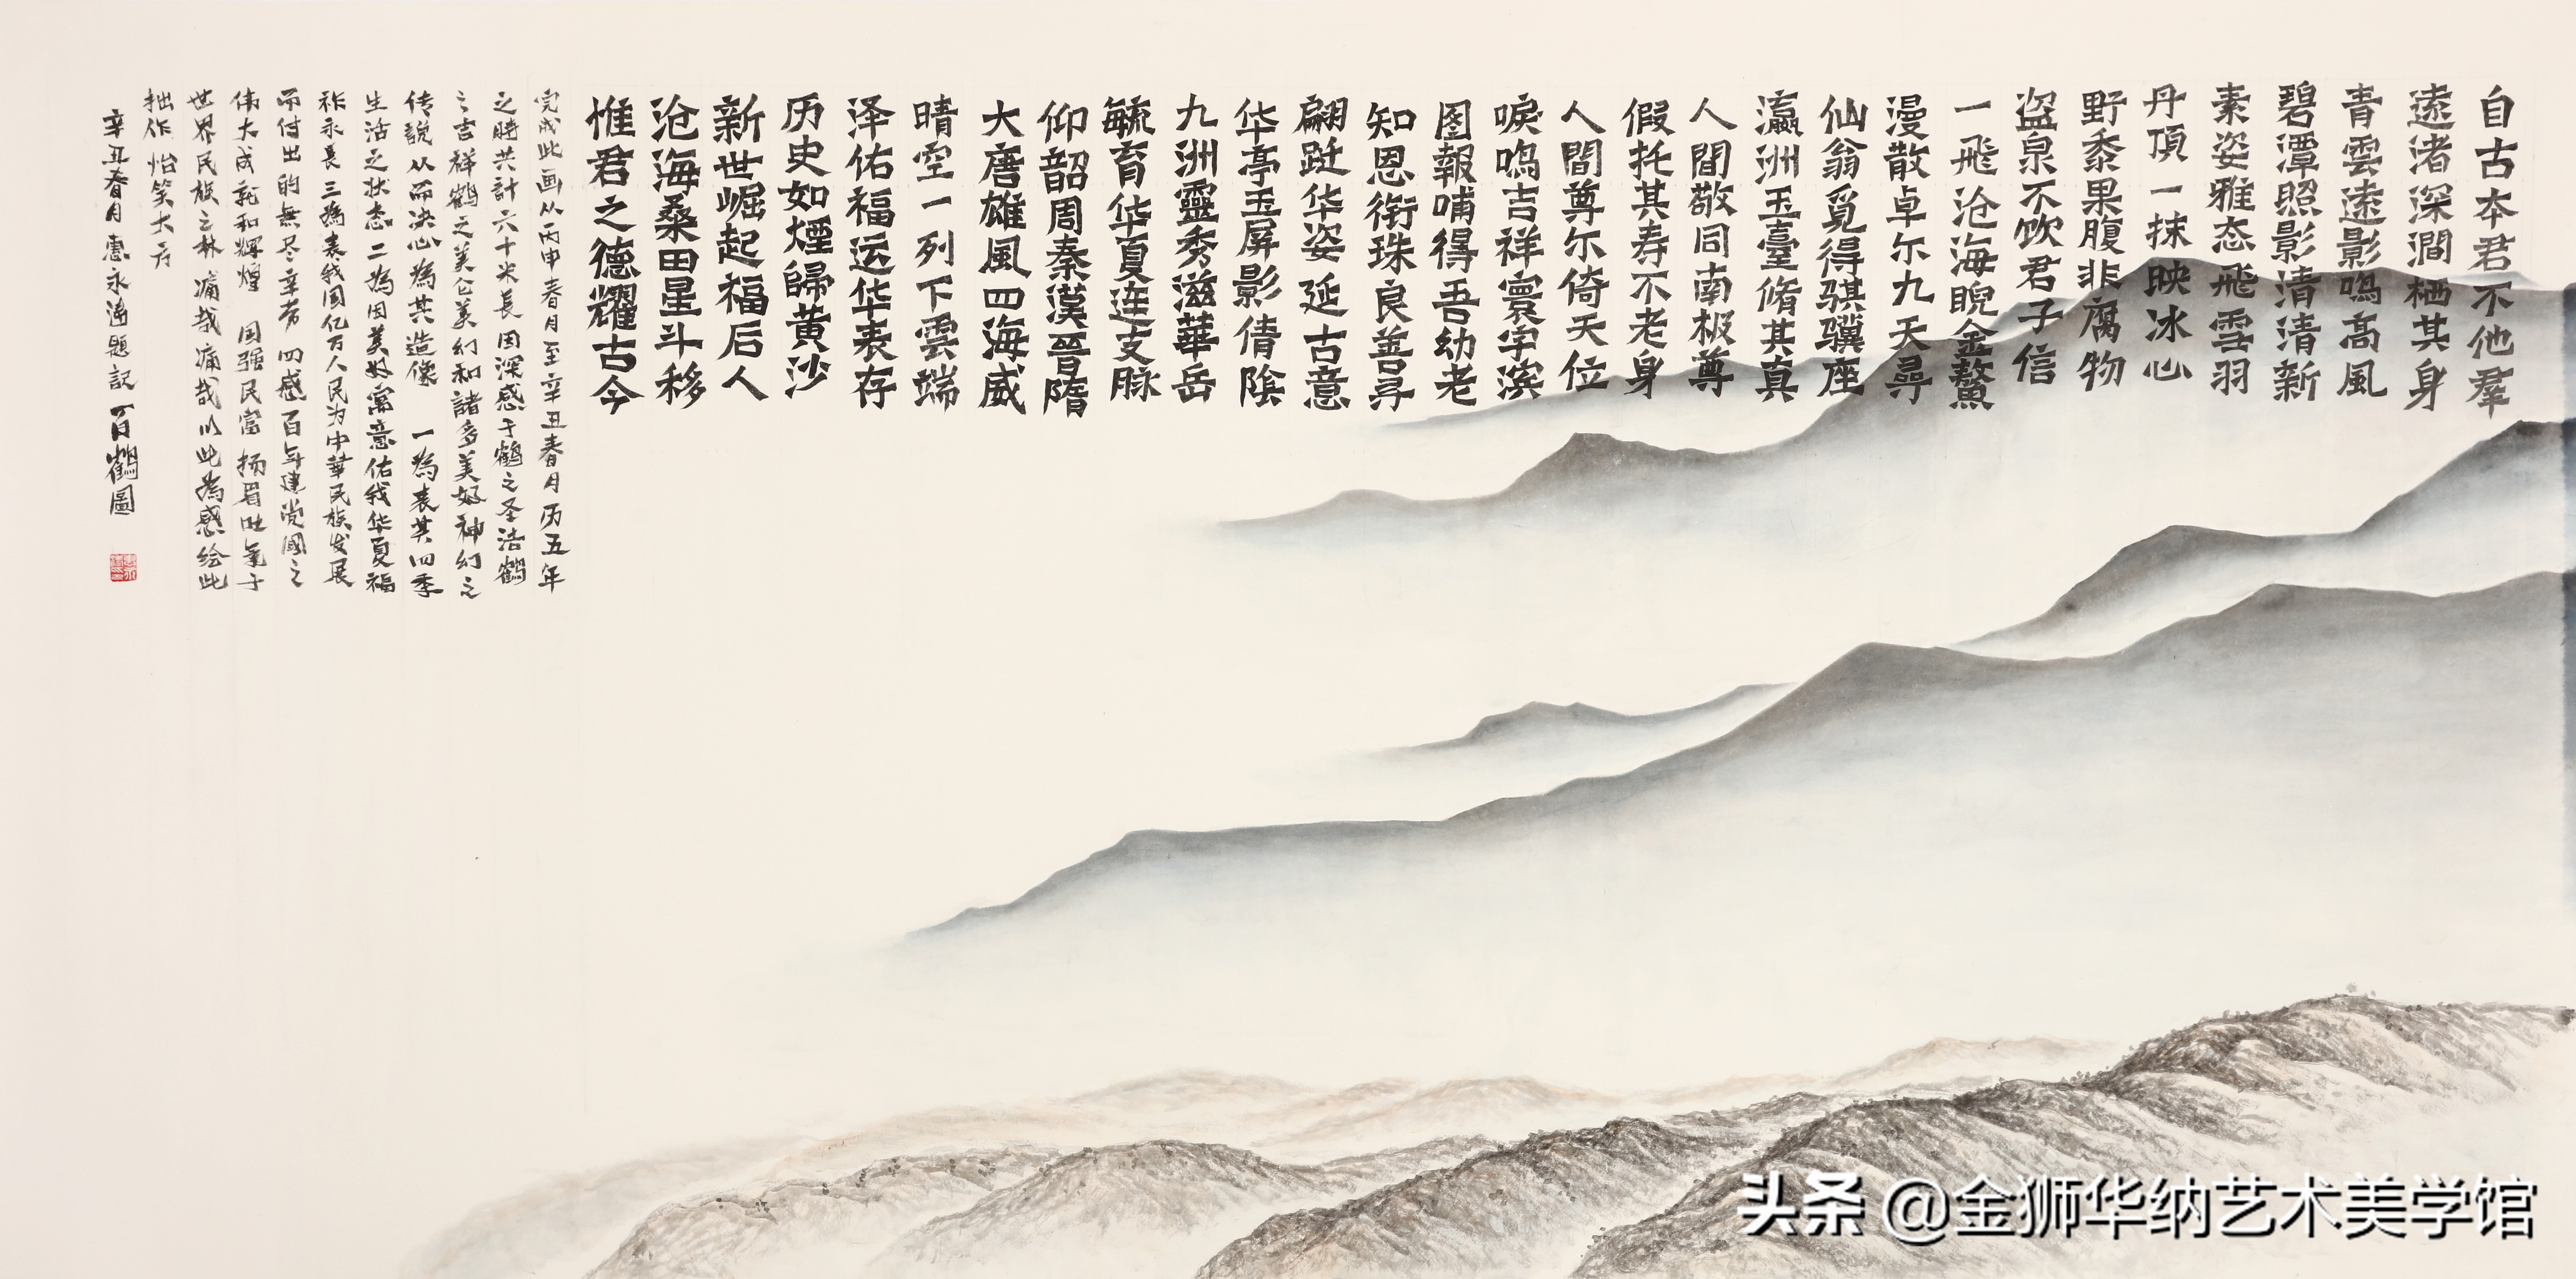 自古本君不他羣
遠渚深澗栖其身
青雲遠影鳴高風
碧潭照影清清新
素姿雅态飛雪羽
丹頂一抹映冰心
野黍果腹非腐物
盗泉不饮君子信
一飛沧海睨金鰲
漫散卓尔九天尋
仙翁觅得骐骥座
瀛洲玉臺脩其真
人間敬同南极尊
假托其寿不老身
人間尊尔倚天位
唳鳴吉祥寰宇滨
图報哺得吾幼老
知恩衔珠良善寻
翩跹华姿延古意
华亭玉屏影倩陰
九洲靈秀滋華岳
毓育华夏连支脉
仰韶周秦漢晉隋
大唐雄風四海威
晴空一列下雲端
泽佑福运华表存
历史如煙歸黄沙
新世崛起福后人
沧海桑田星斗移
惟君之德耀古今
完成此画从丙申春月至辛丑春月历五年
之時共計六十米長 因深感于鶴之圣洁鶴
之吉祥鶴之美仑美幻和諸多美好神幻之
传説从而决心為其造像 一為表其四季
生活之状态二為因美好寓意佑我华夏福
祚永長三為表我国亿万人民为中華民族发展
而付出的無尽辛劳 四感百年建党國之
伟大成就和輝煌 国强民富 扬眉吐氣于
世界民族之林 痛哉痛哉以此為感绘此
拙作 怡笑大方
辛丑春月惠永 題記 百鶴圖
头条 @金狮华纳艺术美学馆